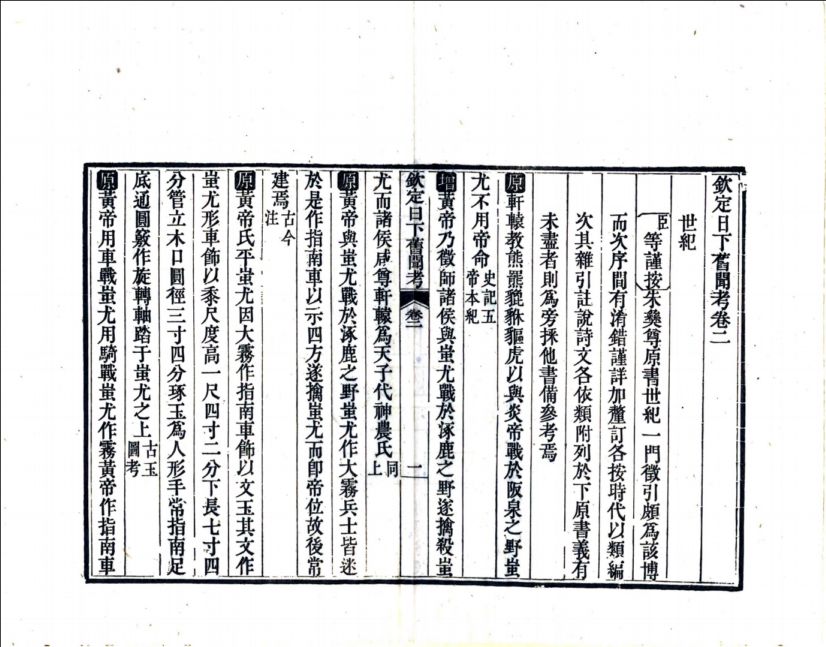 欽定日下舊聞考卷二
世紀
臣等謹按朱彝尊原書世紀一門徵引頗爲該博
而次序間有淆錯謹詳加釐訂各按時代以類編
次其雜引註說詩文各依類附列於下原書義有
未盡者則爲旁採他書備參考焉
原軒轅教熊羆貔貅貙虎以與炎帝戰於阪泉之野蚩
尤不用帝命史記五帝本紀
增黃帝乃徵師諸侯與蚩尤戰於涿鹿之野遂擒殺蚩
欽定日下舊聞考 卷二 一
尤而諸侯咸尊軒轅爲天子代神農氏同上
原黃帝與蚩尤戰於涿鹿之野蚩尤作大霧兵士皆迷
於是作指南車以示四方遂擒蚩尤而卽帝位故後常
建焉古今注
原黃帝氏平蚩尤因大霧作指南車飾以文玉其文作
蚩尤形車飾以黍尺度高一尺四寸二分下長七寸四
分管立木口圓徑三寸四分琢玉爲人形手常指南足
底通圓竅作旋轉軸踏于蚩尤之上古玉圖考
原黃帝用車戰蚩尤用騎戰蚩尤作霧黃帝作指南車